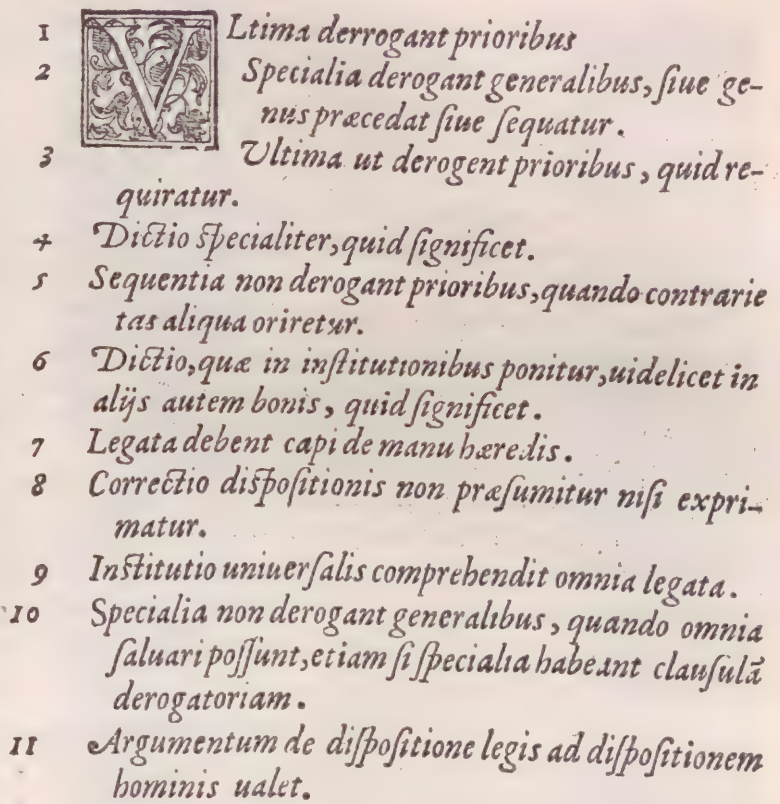 1 VLtima derrogant prioribus
2 Specialia derogant generalibus, ſiue ge-
nus præcedat ſiue ſequatur.
3 Ultima ut derogent prioribus, quid re-
quiratur.
4 Dictio ſpecialiter, quid ſignificet.
5 Sequentia non derogant prioribus, quando contrarie
tas aliqua oriretur.
6 Dictio, quæ in inſtitutionibus ponitur, uidelicet in
alijs autem bonis, quid ſignificet.
7 Legata debent capi de manu hæredis.
8 Correctio diſpoſitionis non præſumitur niſi expri-
matur.
9 Inſtitutio uniuerſalis comprehendit omnia legata.
10 Specialia non derogant generalibus, quando omnia
ſaluari poſſunt, etiam ſi ſpecialia habeant clauſulã
derogatoriam.
11 Argumentum de diſpoſitione legis ad diſpoſitionem
hominis ualet.